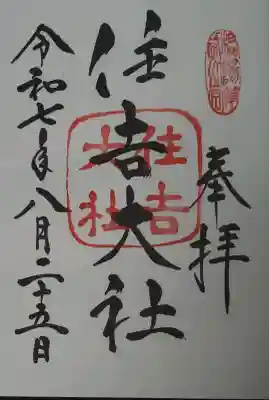 奉拝
住吉大社
住吉大社
令和七年八月二十五日